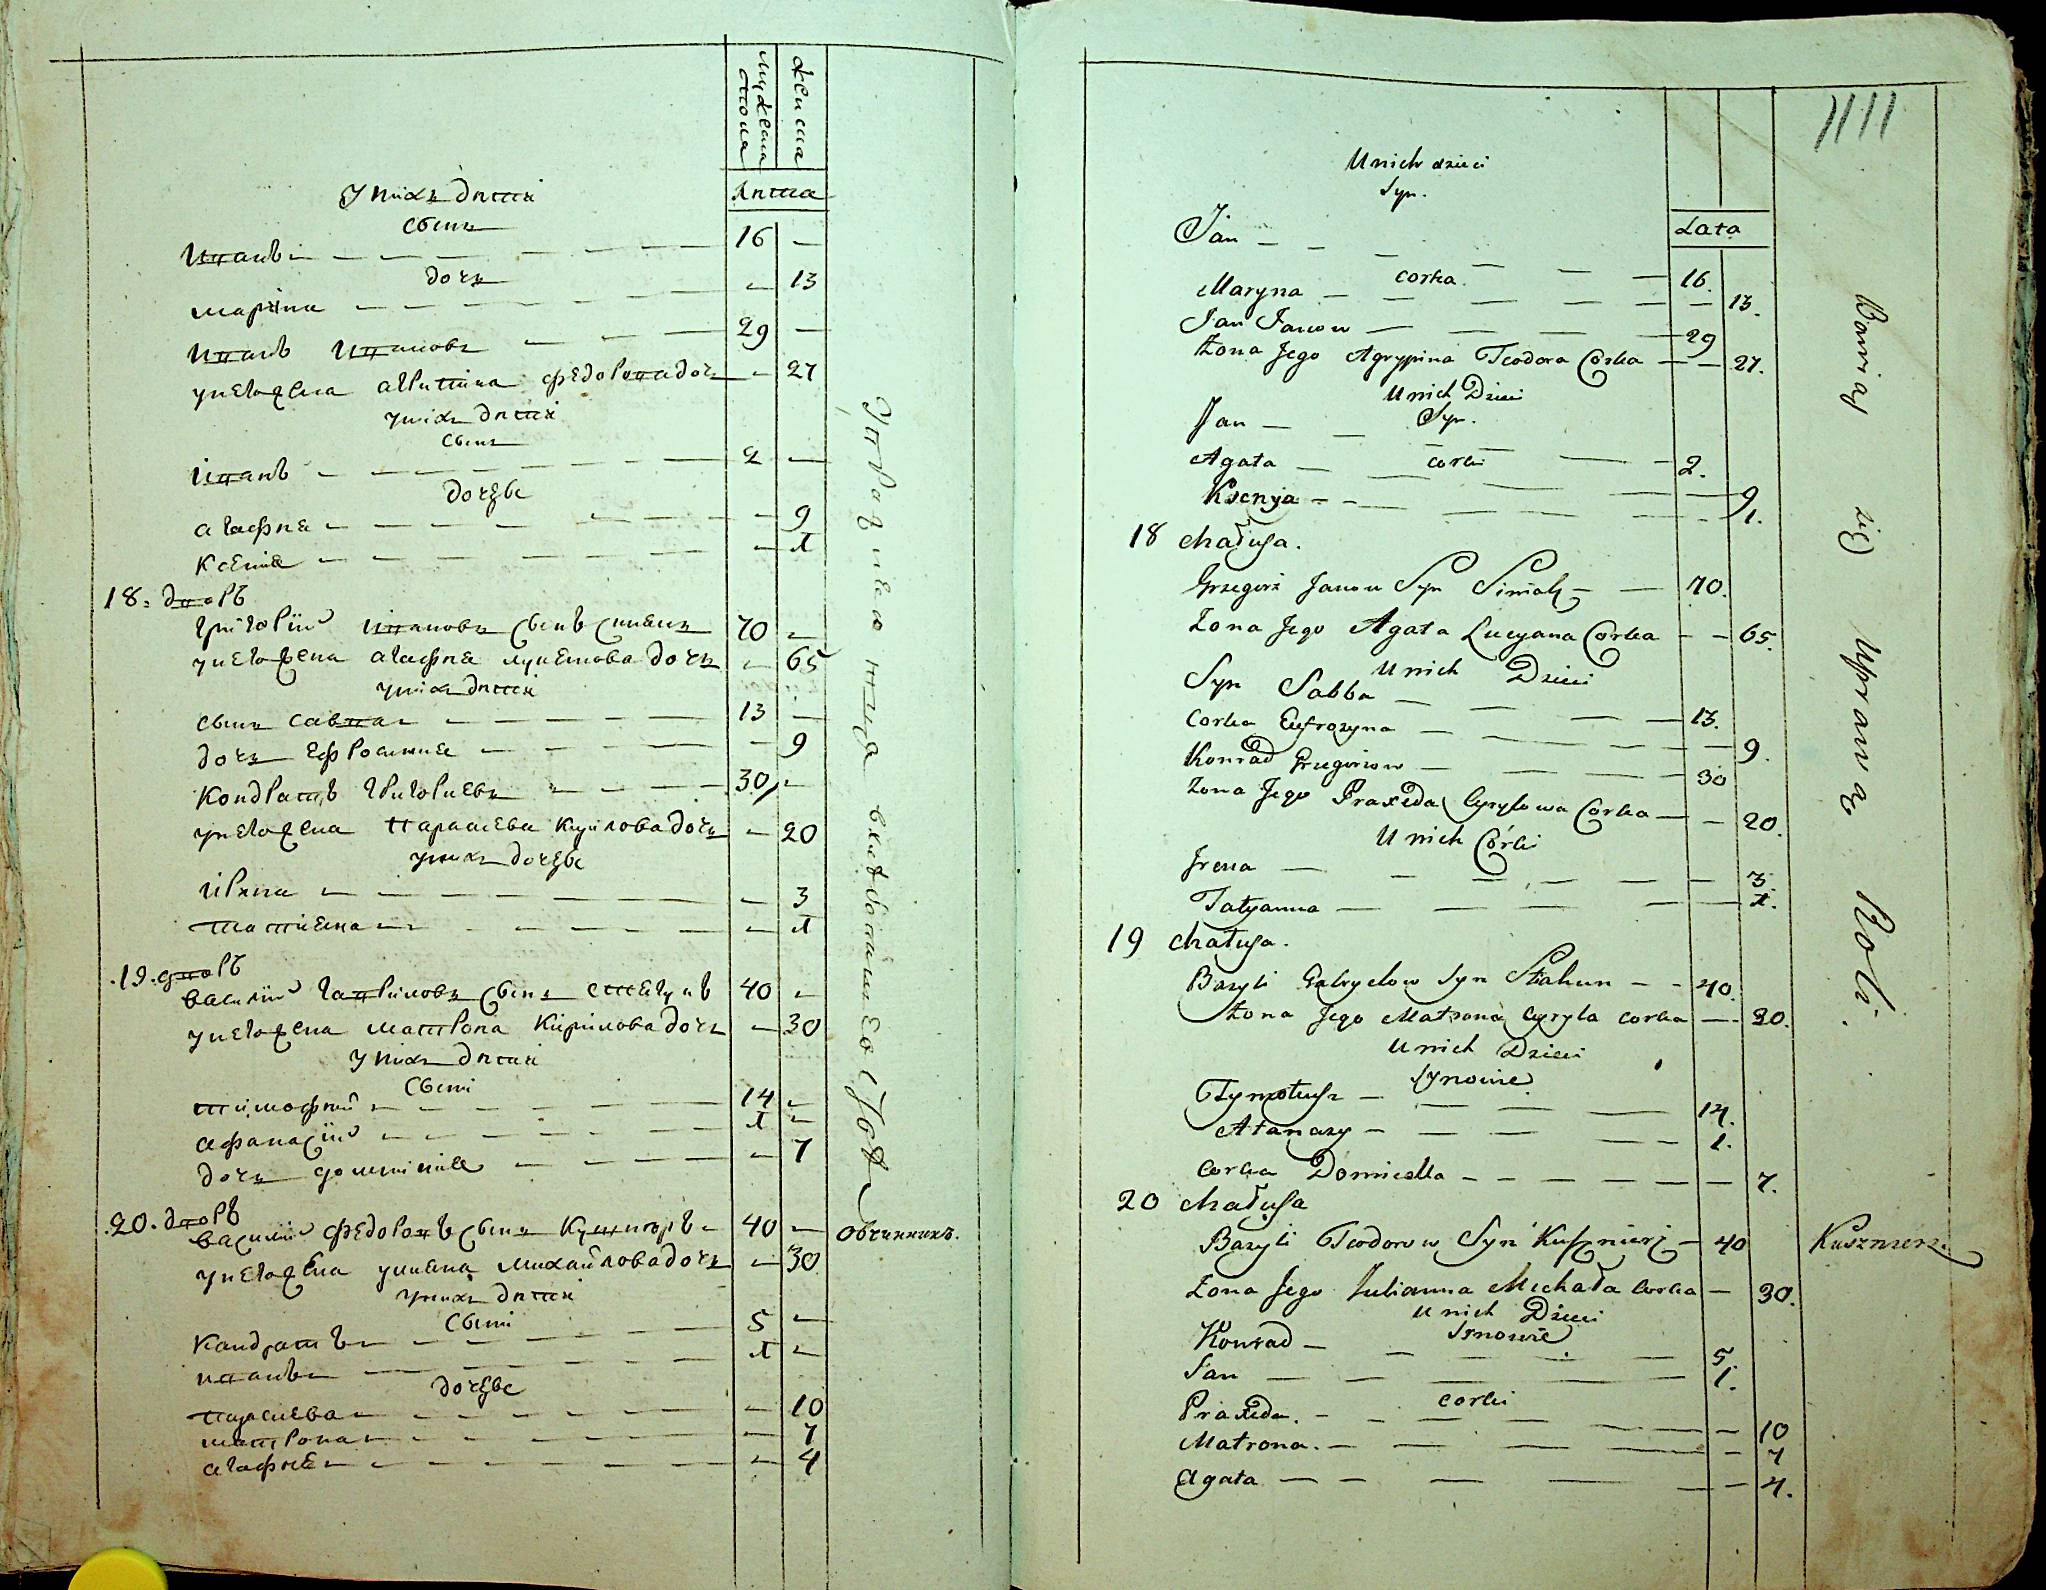 мужеска пола
женска
Лѣта
У нихъ дѣти
сынъ
Иванъ — 16 —
дочь
марина — — 13
Иванъ Ивановъ — 29 —
у него жена агрипина федорова дочь — 27
у нихъ дѣти
сынъ
Иванъ — 2 —
дочери
агафия — — 9
Ксения — — 1
18. дворъ
григорий Ивановъ сынъ 70 —
у него жена агафия дочь — 65
у нихъ дѣти
сынъ савва — 13 —
дочь ефросиния — — 9
Кондратъ григориевъ — 30 —
у него жена параскева Кирилова дочь — 20
у нихъ дочери
ирина — — 3
татиана — — 1
19. дворъ
василий гавриловъ сынъ 40 —
у него жена матрона Кирилова дочь — 30
У нихъ дѣти
сыни
тимофий — 14 —
афанасий — 1 —
дочь — — 7
20. дворъ
василий федоровъ сынъ Кушниръ 40 — овчинникъ.
у него жена улиана михайлова дочь — 30
у нихъ дѣти
сыни
Кандратъ — 5 —
иванъ — 1 —
дочери
параскева — — 10
матрона — — 7
агафия — — 4
У нich dzieci
Syn.
Lata
Jan — 16.
corka
Maryna — — 13.
Jan Janow — 29
Żona Jego Agrypina Teodora Corka — — 27.
U nich Dzieci
Syn.
Jan — 2.
corki
Agata — 9
Ksenja — 1.
18 Chałupa.
Grzegorz Janow Syn — 70.
Żona Jego Agata Lucyana Corka — — 65.
U nich Dzieci
Syn Sabba — 13.
Corka Eufrozyna — — 9.
Konrad Grzegorzow — 30
Żona Jego Praxeda Cyryłowa Corka — — 20.
U nich Córki
Irena — 3.
Tatyanna — 1.
19 Chałupa.
Bazyli Gabryelow Syn — 40.
Żona Jego Matrona Cyryla corka — 30.
U nich Dzieci
Synowie
Tymoteusz — 14.
Atanazy — 1.
Corka Domicella — 7.
20 Chałupa
Bazyli Teodorow Syn Kuśznierz — 40 Kusznierz.
Żona Jego Julianna Michała Corka — 30.
U nich Dzieci
Synowie
Konrad — 5.
Jan — 1.
corki
Praxeda. — 10
Matrona. — 7
Agata — 4.
Bawią się Uprawą Roli.